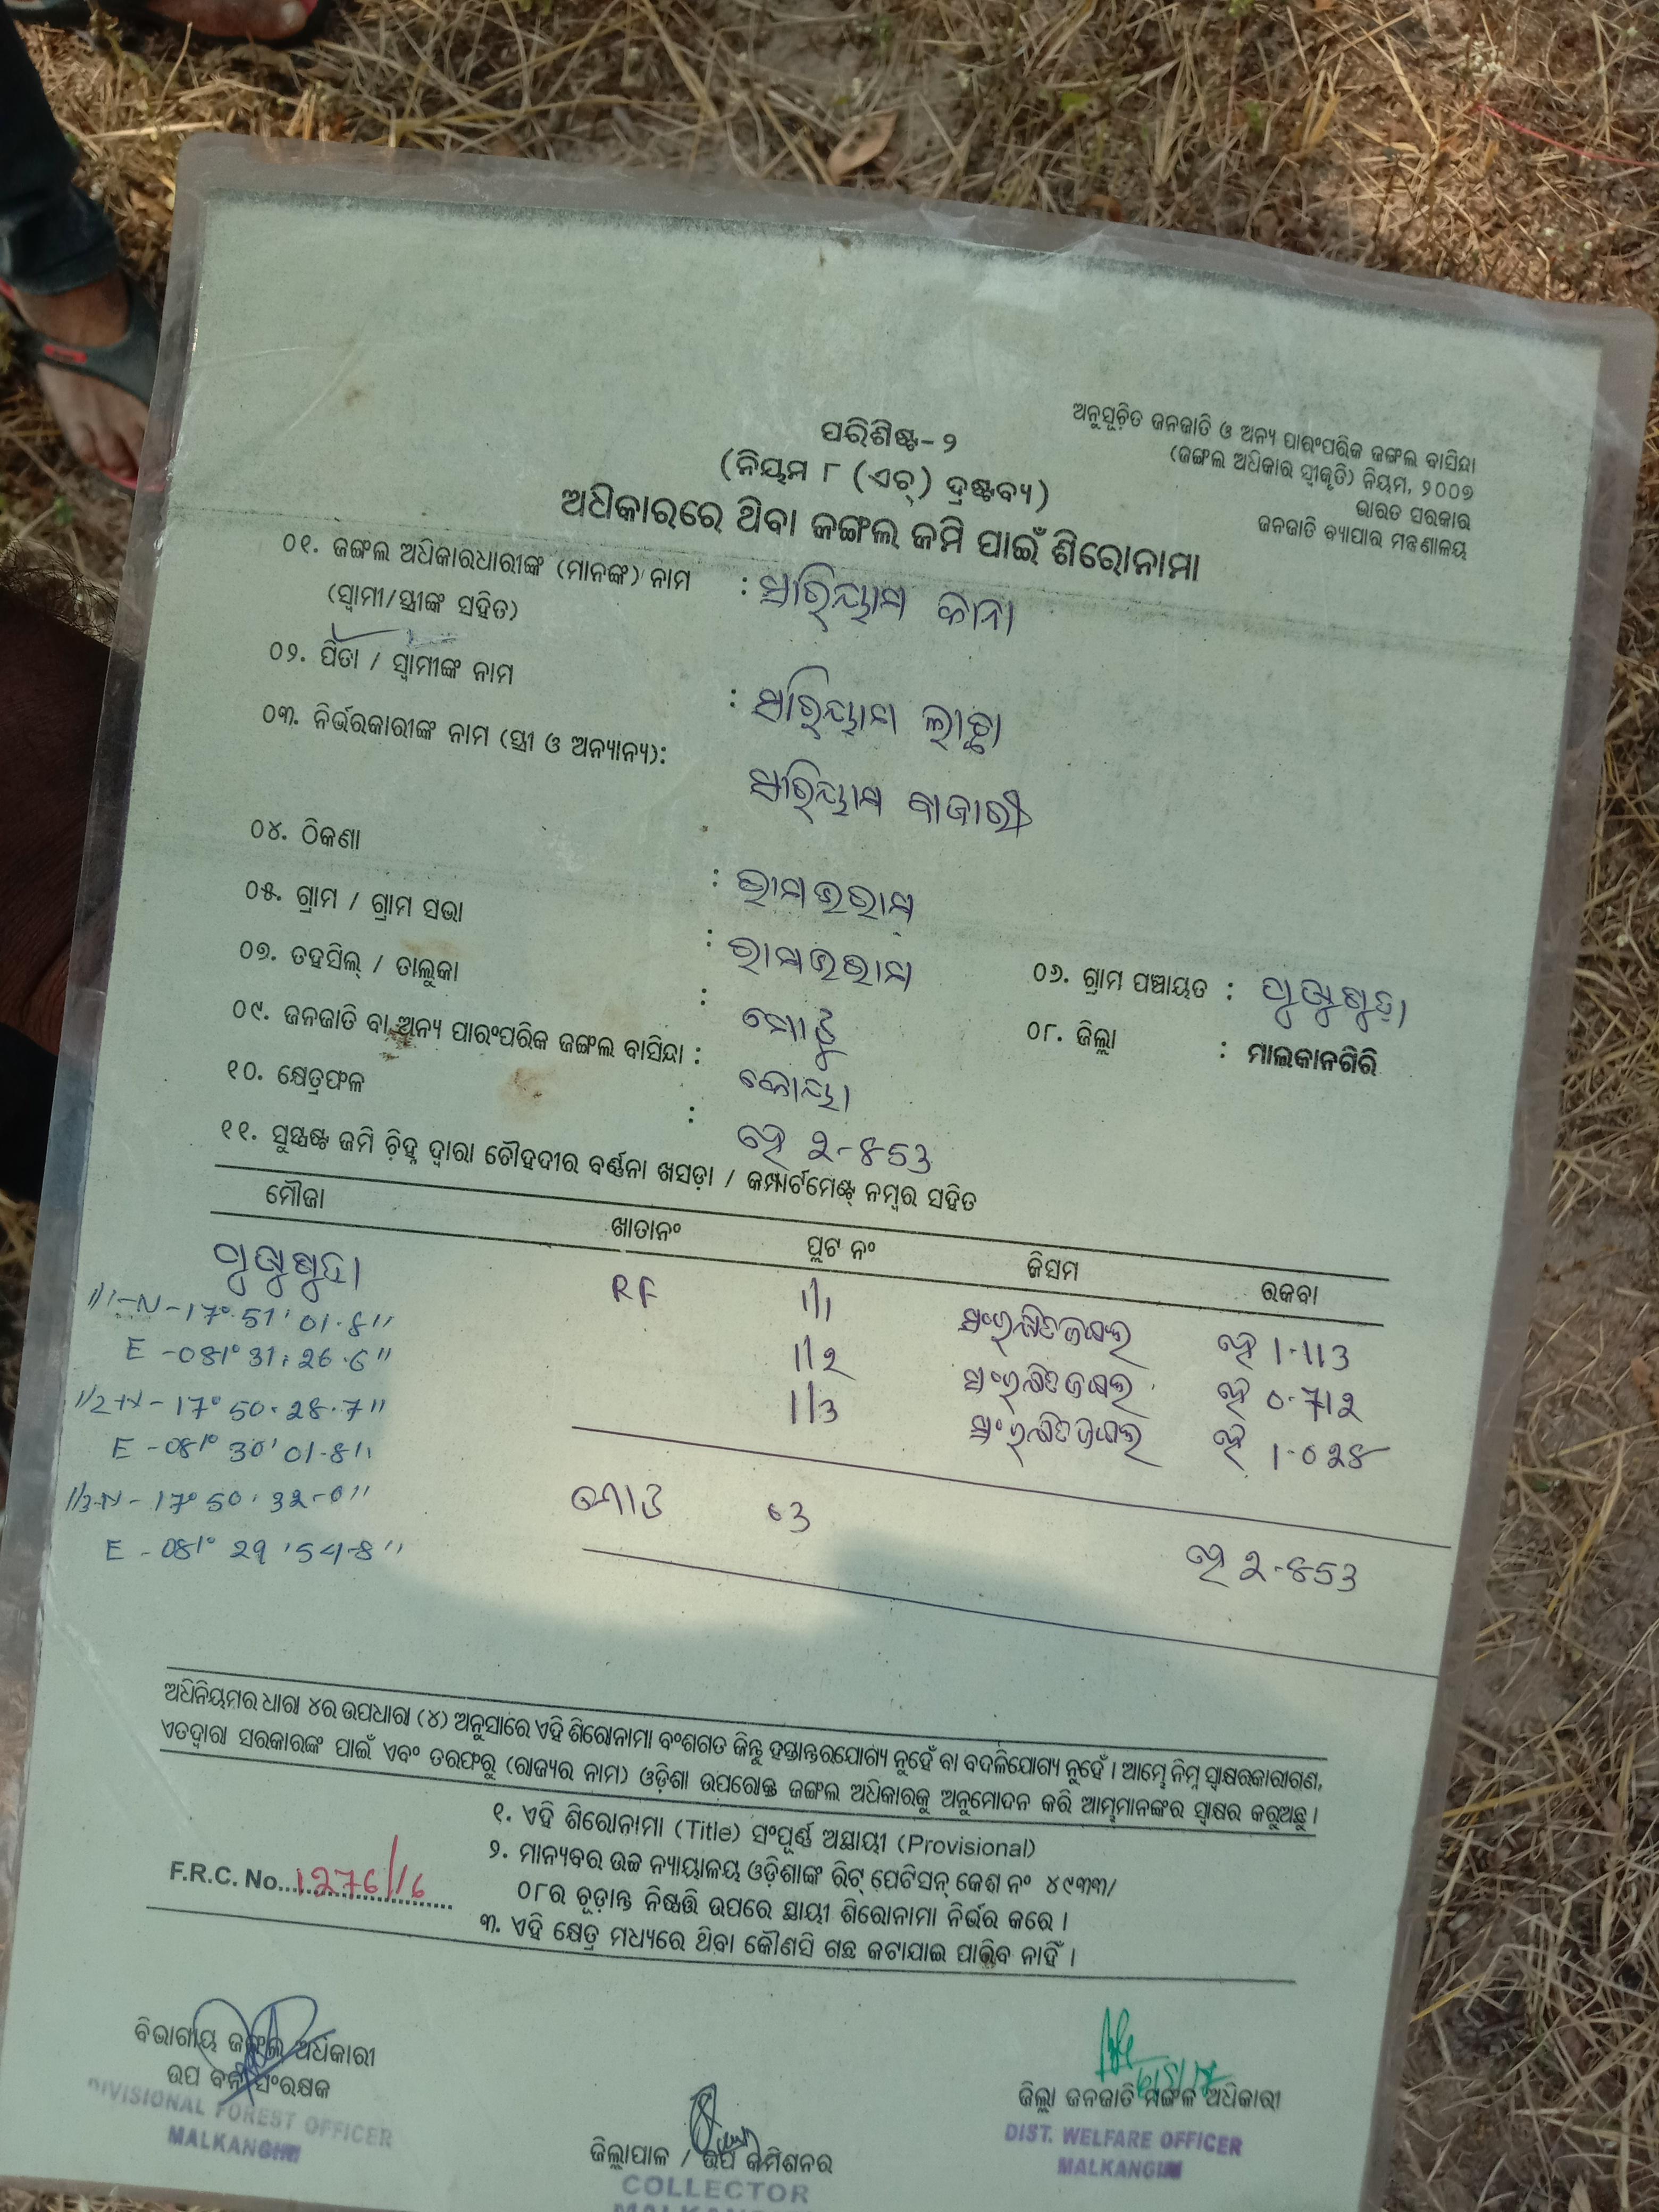 ଅନୁସୂଚିତ ଜନଜାତି ଓ ଅନ୍ୟ ପାରଂପରିକ ଜଙ୍ଗଲ ବାସିନ୍ଦା
(ଜଙ୍ଗଲ ଅଧିକାର ସ୍ୱୀକୃତି) ନିୟମ, ୨୦୦୭
ଭାରତ ସରକାର
ଜନଜାତି ବ୍ୟାପାର ମନ୍ତ୍ରଣାଳୟ
ପରିଶିଷ୍ଟ-୨
(ନିୟମ ୮ (ଏଚ୍) ଦ୍ରଷ୍ଟବ୍ୟ)
ଅଧିକାରରେ ଥିବା ଜଙ୍ଗଲ ଜମି ପାଇଁ ଶିରୋନାମା
୦୧. ଜଙ୍ଗଲ ଅଧିକାରଧାରୀଙ୍କ (ମାନଙ୍କ) ନାମ :
(ସ୍ୱାମୀ/ସ୍ତ୍ରୀଙ୍କ ସହିତ)
୦୨. ପିତା / ସ୍ୱାମୀଙ୍କ ନାମ :
୦୩. ନିର୍ଭରକାରୀଙ୍କ ନାମ (ସ୍ତ୍ରୀ ଓ ଅନ୍ୟାନ୍ୟ):
୦୪. ଠିକଣା :
୦୫. ଗ୍ରାମ / ଗ୍ରାମ ସଭା : ୦୬. ଗ୍ରାମ ପଞ୍ଚାୟତ :
୦୭. ତହସିଲ୍ / ତାଲୁକା : ମୋଟୁ ୦୮. ଜିଲ୍ଲା : ମାଲକାନଗିରି
୦୯. ଜନଜାତି ବା ଅନ୍ୟ ପାରଂପରିକ ଜଙ୍ଗଲ ବାସିନ୍ଦା : କୋୟା
୧୦. କ୍ଷେତ୍ରଫଳ : ହେ 2-853
୧୧. ସୁସ୍ପଷ୍ଟ ଜମି ଚିହ୍ନ ଦ୍ୱାରା ଚୌହଦୀର ବର୍ଣ୍ଣନା ଖସଡ଼ା / କମ୍ପାର୍ଟମେଣ୍ଟ୍ ନମ୍ବର ସହିତ
ମୌଜା ଖାତାନଂ ପ୍ଲଟ ନଂ କିସମ ରକବା
RF 1/1 ସଂରକ୍ଷିତ ଜଙ୍ଗଲ ହେ 1-113
1/2 ସଂରକ୍ଷିତ ଜଙ୍ଗଲ ହେ 0-712
1/3 ସଂରକ୍ଷିତ ଜଙ୍ଗଲ ହେ 1-028
1/1-N-17° 51' 01.8"
E -081° 31: 26.6"
1/2-N-17° 50. 28.7"
E -081° 30' 01-8"
1/3-N-17° 50. 32-0"
E -081° 29 '54-8"
ମୋଟ ହେ 2-853
ଅଧିନିୟମର ଧାରା ୪ର ଉପଧାରା (୪) ଅନୁସାରେ ଏହି ଶିରୋନାମା ବଂଶଗତ କିନ୍ତୁ ହସ୍ତାନ୍ତରଯୋଗ୍ୟ ନୁହେଁ ବା ବଦଳିଯୋଗ୍ୟ ନୁହେଁ । ଆମ୍ଭେ ନିମ୍ନ ସ୍ୱାକ୍ଷରକାରୀଗଣ,
ଏତଦ୍ୱାରା ସରକାରଙ୍କ ପାଇଁ ଏବଂ ତରଫରୁ (ରାଜ୍ୟର ନାମ) ଓଡ଼ିଶା ଉପରୋକ୍ତ ଜଙ୍ଗଲ ଅଧିକାରକୁ ଅନୁମୋଦନ କରି ଆମ୍ଭମାନଙ୍କର ସ୍ୱାକ୍ଷର କରୁଅଛୁ ।
୧. ଏହି ଶିରୋନାମା (Title) ସଂପୂର୍ଣ୍ଣ ଅସ୍ଥାୟୀ (Provisional)
୨. ମାନ୍ୟବର ଉଚ୍ଚ ନ୍ୟାୟାଳୟ ଓଡ଼ିଶାଙ୍କ ରିଟ୍ ପେଟିସନ୍ କେଶ ନଂ ୪୯୩୩/
୦୮ର ଚୂଡ଼ାନ୍ତ ନିଷ୍ପତ୍ତି ଉପରେ ସ୍ଥାୟୀ ଶିରୋନାମା ନିର୍ଭର କରେ ।
୩. ଏହି କ୍ଷେତ୍ର ମଧ୍ୟରେ ଥିବା କୌଣସି ଗଛ କଟାଯାଇ ପାରିବ ନାହିଁ ।
F.R.C. No. 1276/16
ବିଭାଗୀୟ ଜଙ୍ଗଲ ଅଧିକାରୀ
ଉପ ବନ ସଂରକ୍ଷକ
DIVISIONAL FOREST OFFICER
MALKANGIRI
ଜିଲ୍ଲାପାଳ / ଉପ କମିଶନର
COLLECTOR
ଜିଲ୍ଲା ଜନଜାତି ମଙ୍ଗଳ ଅଧିକାରୀ
DIST. WELFARE OFFICER
MALKANGIRI